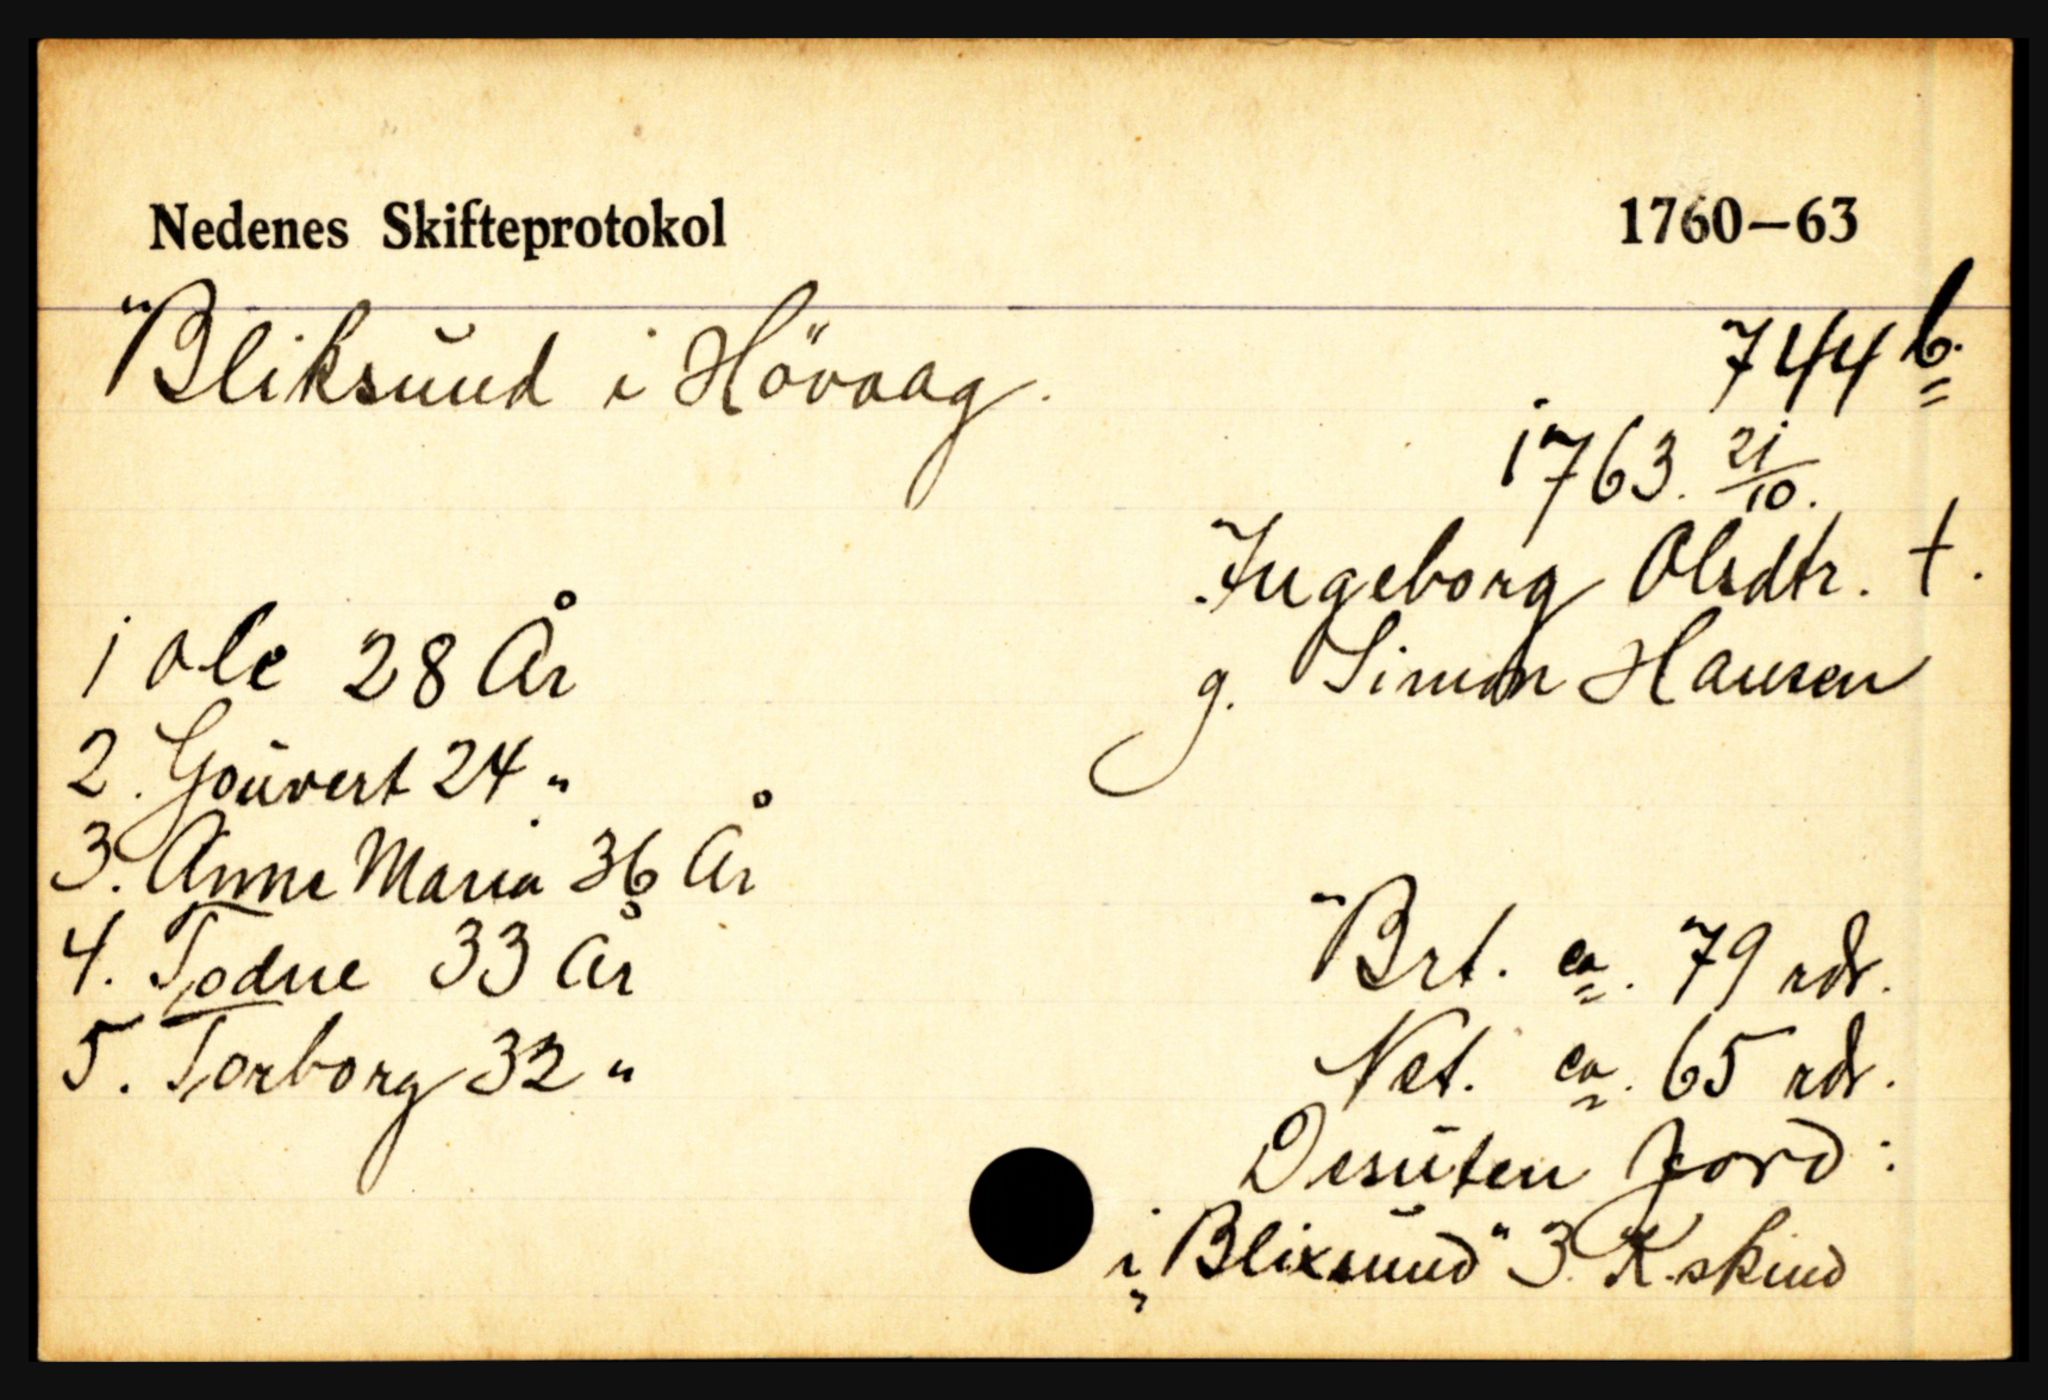 Nedenes Skifteprotokol 1760–63
Bliksund i Hövaag.
744 b.
1763. 21/10.
Ingeborg Olsdtr. †.
g. Simon Hansen
1 Ole 28 År
2. Gouvert 24 "
3. Anne Maria 36 År
4. Todne 33 År
5. Torborg 32 "
Brt. ca. 79 rdr.
Net. ca. 65 rdr.
Desuten Jord:
i „Blixsund" 3 K.skind